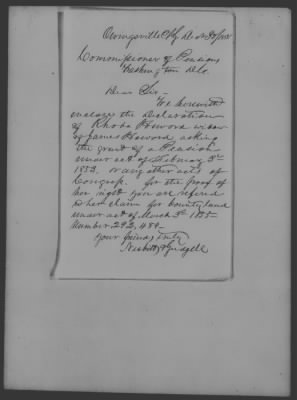 Owingsville Ky
Commissioner of Pensions
Washington D.C.
Dear Sir -
We herewith
enclose the Declaration
of Rhoda Howard widow
of James Howard, asking
the grant of a Pension
under act of February 3rd
1853. or any other acts of
Congress. for the proof of
her right you are referred
to her claim for bounty land
under act of March 3rd 1855
Number 292,484-
Your friends, truly
Nesbitt & Gudgell